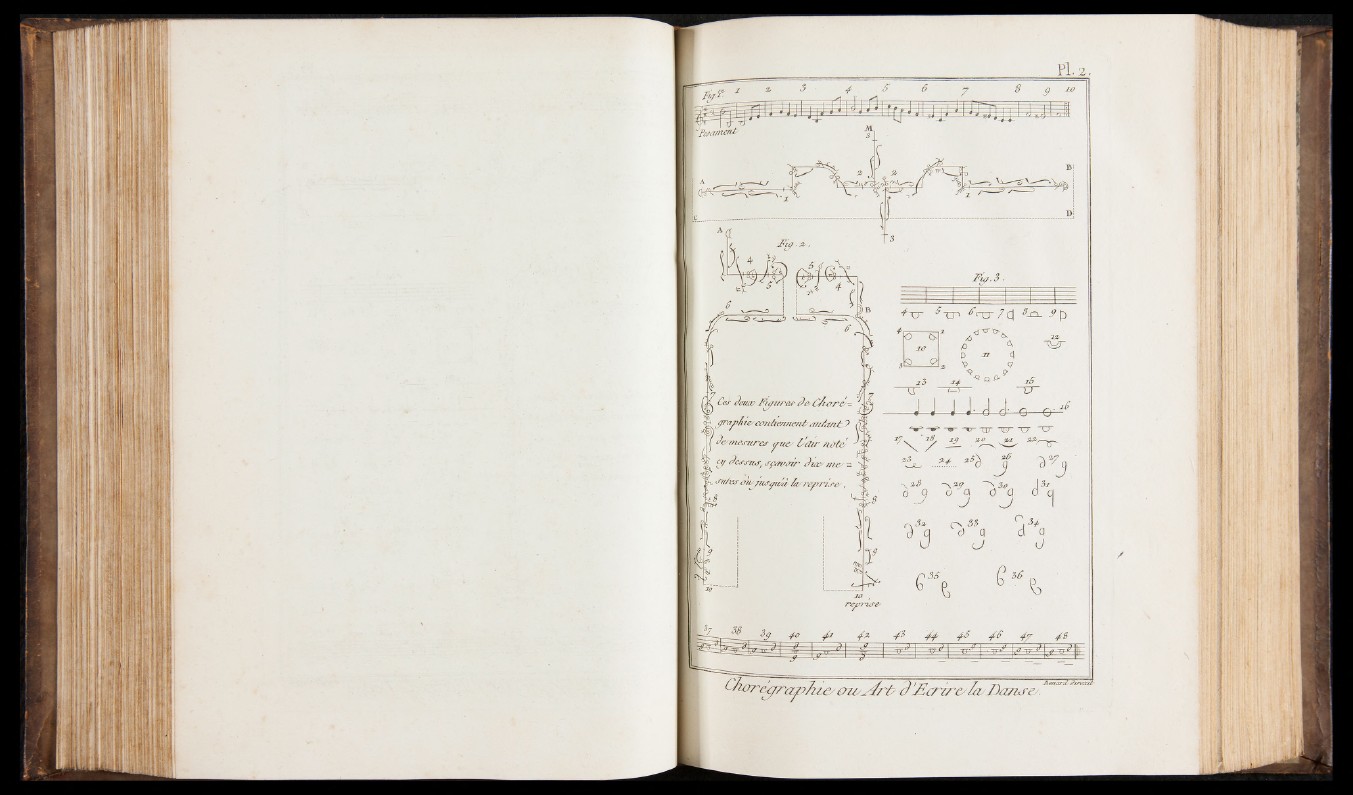 Pl. 2.
Fig. 1re 1 2 3 4 5 6 7 8 9 10
M
3
A 1 2 2 1 B
D
3
A Fig. 2.
4 5 5 4
6 B
5 5 6
Fig. 3.
4 5 6 7 8 9
4 1 12
10 11
3 2
13 14 15
16
17 18 19 20 21 22
23 24 25 26 27
28 29 30 31
32 33 34
35 36
Ces deux Figures de Choré=
graphie contiennent autant
de mesures que l'air noté
cy dessus, sçavoir dix me=
sures ou jusqu'à la reprise.
8 8
9 9
10 10
reprise
37 38 39 40 41 42 43 44 45 46 47 48
Benard Direxit
Chorégraphie ou Art d'Ecrire la Danse.